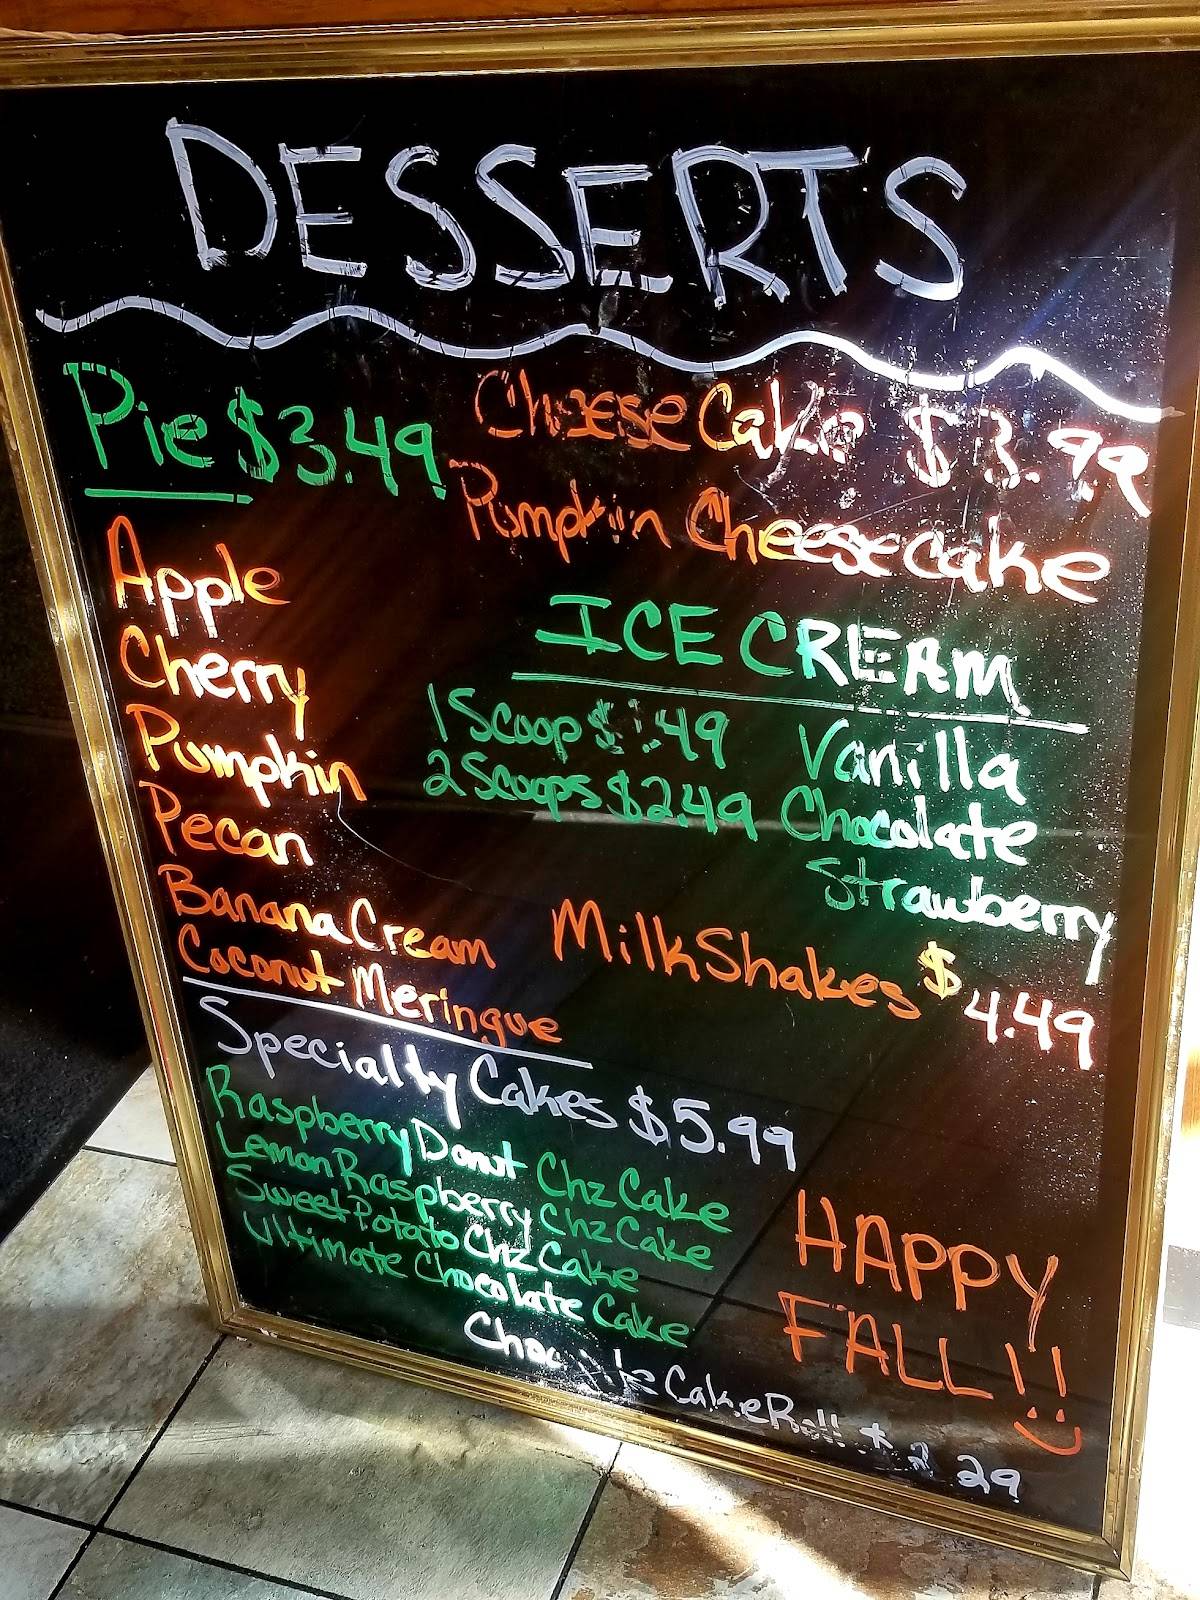 DESSERTS
Pie $3.49
Apple
Cherry
Pumpkin
Pecan
Banana Cream
Coconut Meringue
Cheese Cake $3.99
Pumpkin Cheesecake
ICE CREAM
1 Scoop $1.49
2 Scoops $2.49
Vanilla
Chocolate
Strawberry
MilkShakes $4.49
Specialty Cakes $5.99
Raspberry Donut Chz Cake
Lemon Raspberry Chz Cake
Sweet Potato Chz Cake
Ultimate Chocolate Cake
Chocolate Cake Roll $2.29
HAPPY
FALL!!